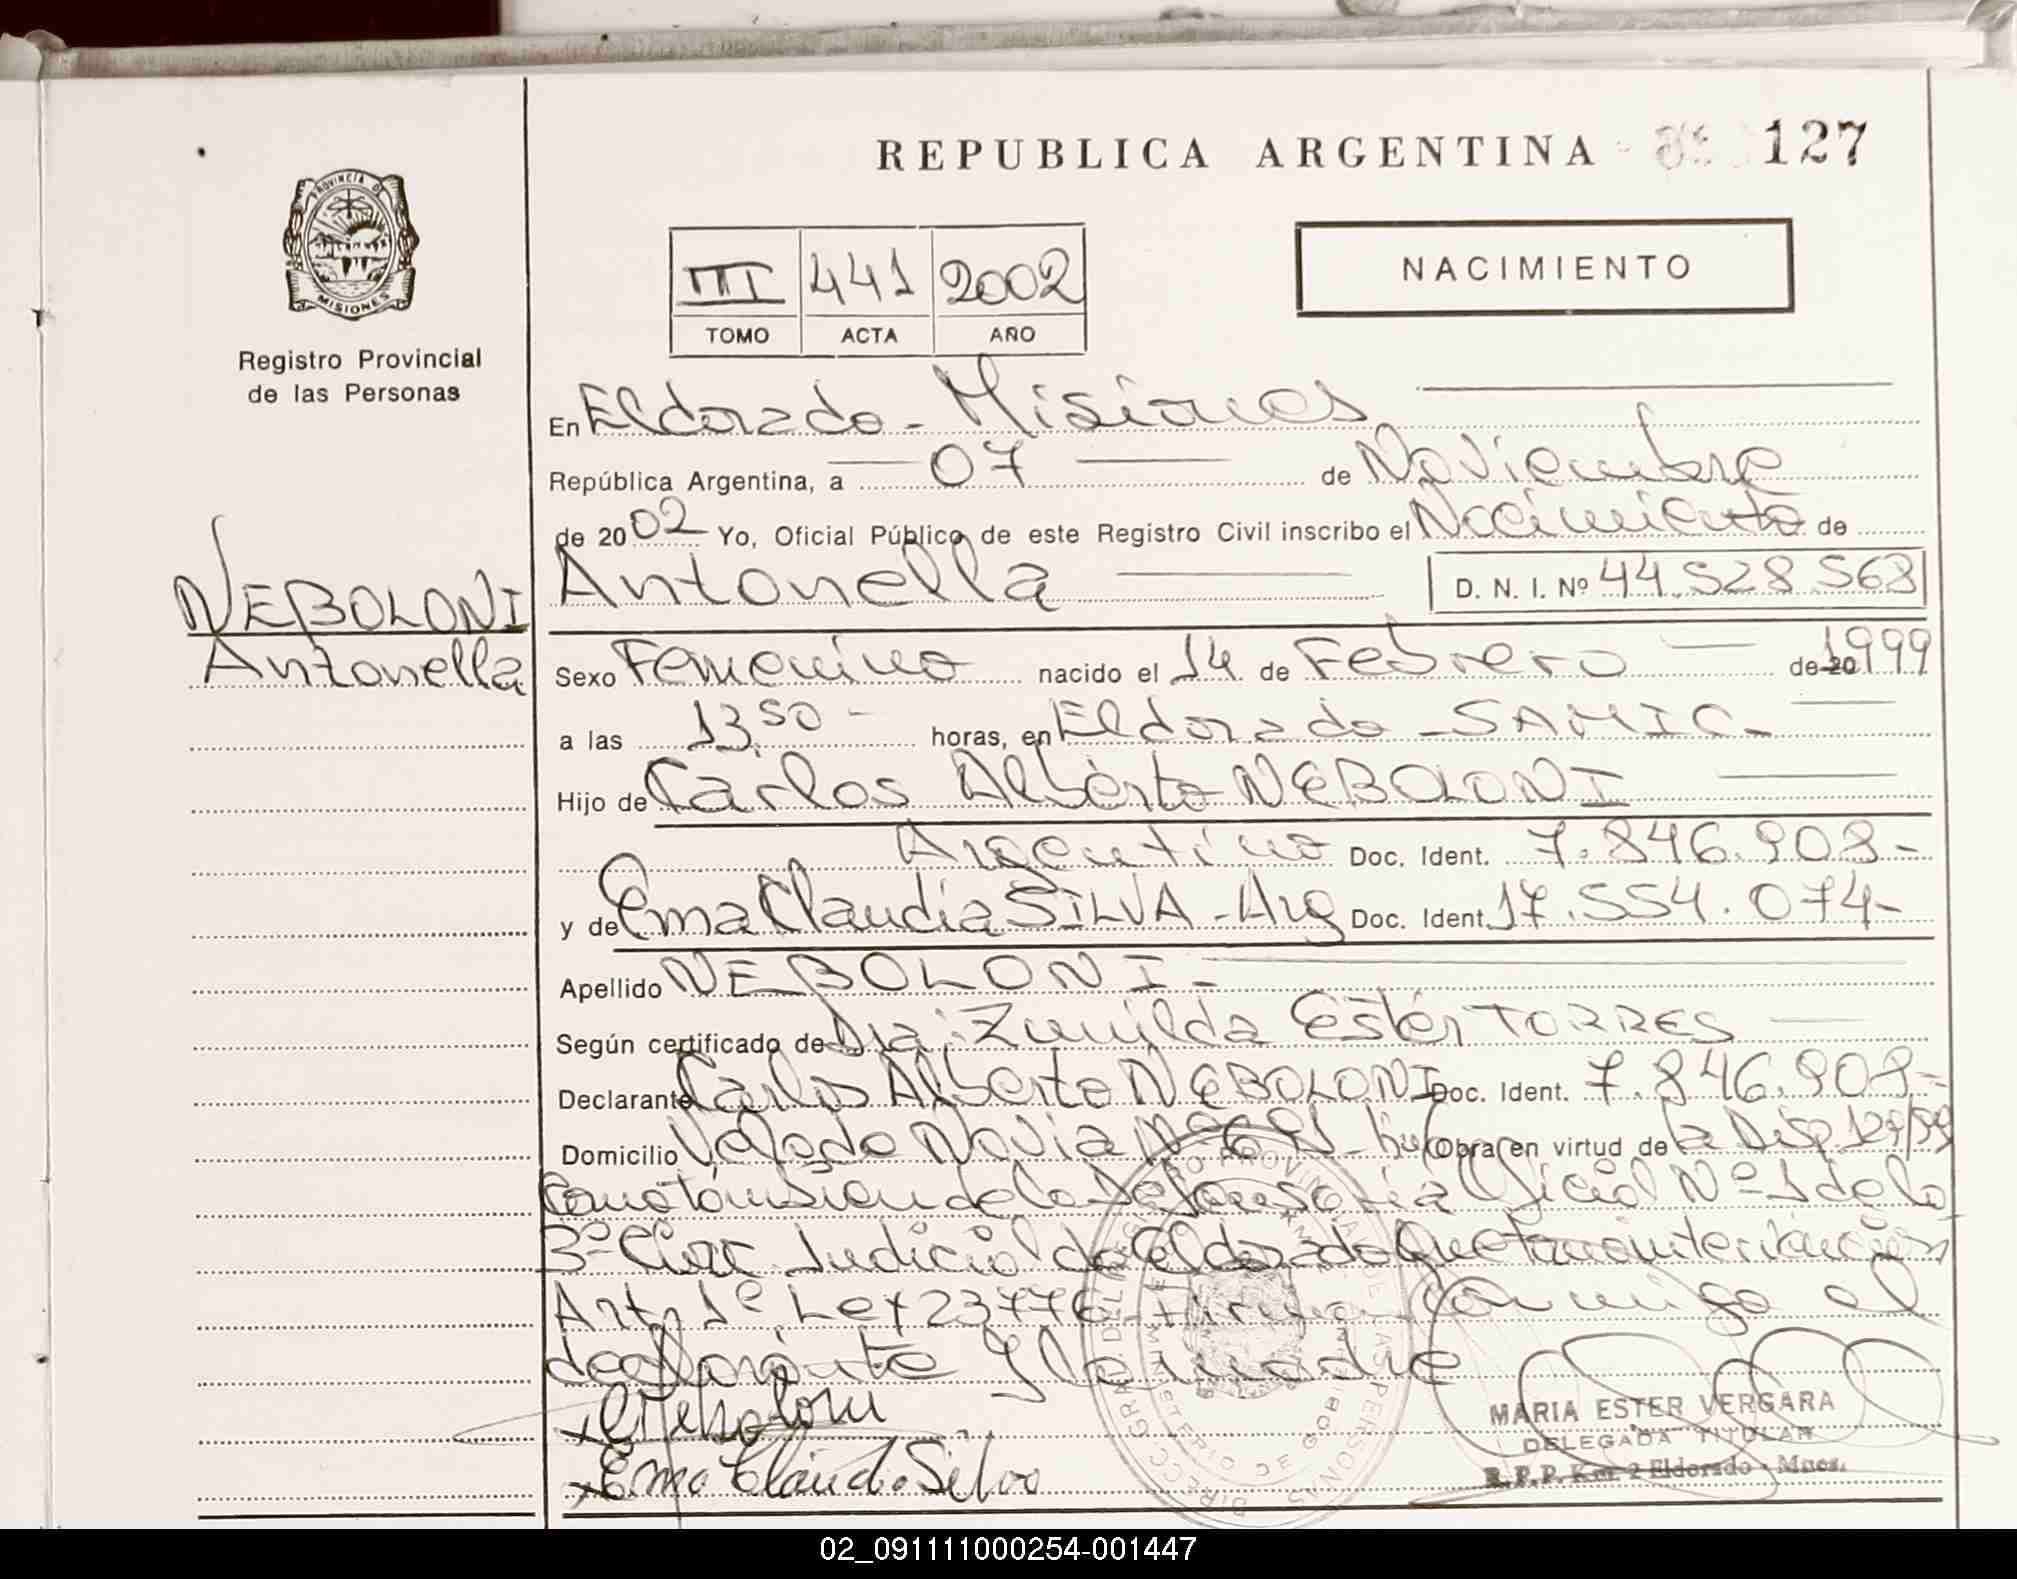 REPUBLICA ARGENTINA 127
PROVINCIA DE MISIONES
Registro Provincial
de las Personas
III 441 2002
TOMO ACTA AÑO
NACIMIENTO
En Eldorado - Misiones
República Argentina, a 07 de Noviembre
de 2002 Yo, Oficial Público de este Registro Civil inscribo el Nacimiento de
Antonella D. N. I. Nº 44.528.568
NEBOLONI
Antonella
Sexo Femenino nacido el 14 de Febrero de 20 1999
a las 13,50 - horas, en Eldorado - SAMIC -
Hijo de Carlos Alberto NEBOLONI
Argentino Doc. Ident. 7.846.908 -
y de Ema Claudia SILVA - Arg Doc. Ident. 17.554.074 -
Apellido NEBOLONI -
Según certificado de Dra: Zunilda Ester TORRES
Declarante Carlos Alberto NEBOLONI Doc. Ident. 7.846.908 -
Domicilio Obra en virtud de la Disp. 129/99
de la Defensoria Oficial Nº 1 de la
3º Circ. Judicial de Eldorado
Art. 1º Ley 23776 - Firma conmigo el
declarante y la madre
Ema Claudia Silva
MARIA ESTER VERGARA
DELEGADA TITULAR
R.P.P. Km. 2 Eldorado - Mnes.
02_091111000254-001447